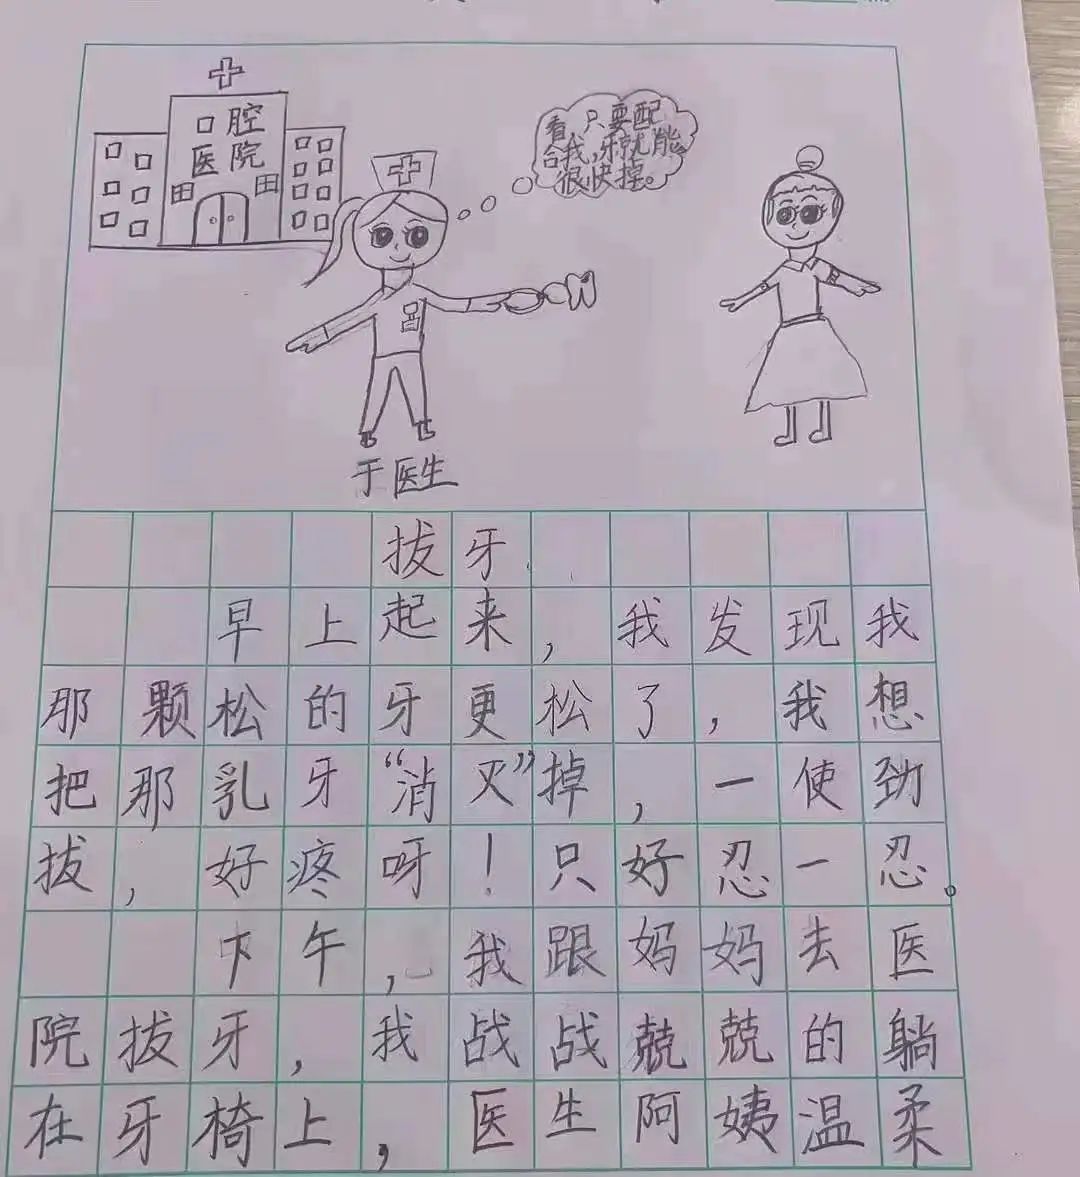 口腔
医院
看,只要配
合我,牙就能
很快掉。
于医生
拔牙
早上起来,我发现我
那颗松的牙更松了,我想
把那乳牙“消灭”掉,一使劲
拔,好疼呀!只好忍一忍。
下午,我跟妈妈去医
院拔牙,我战战兢兢的躺
在牙椅上,医生阿姨温柔